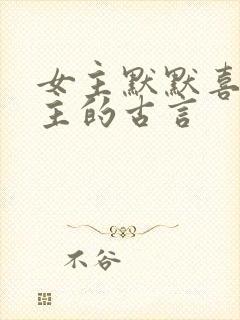 女主默默喜
主的古言
不谷